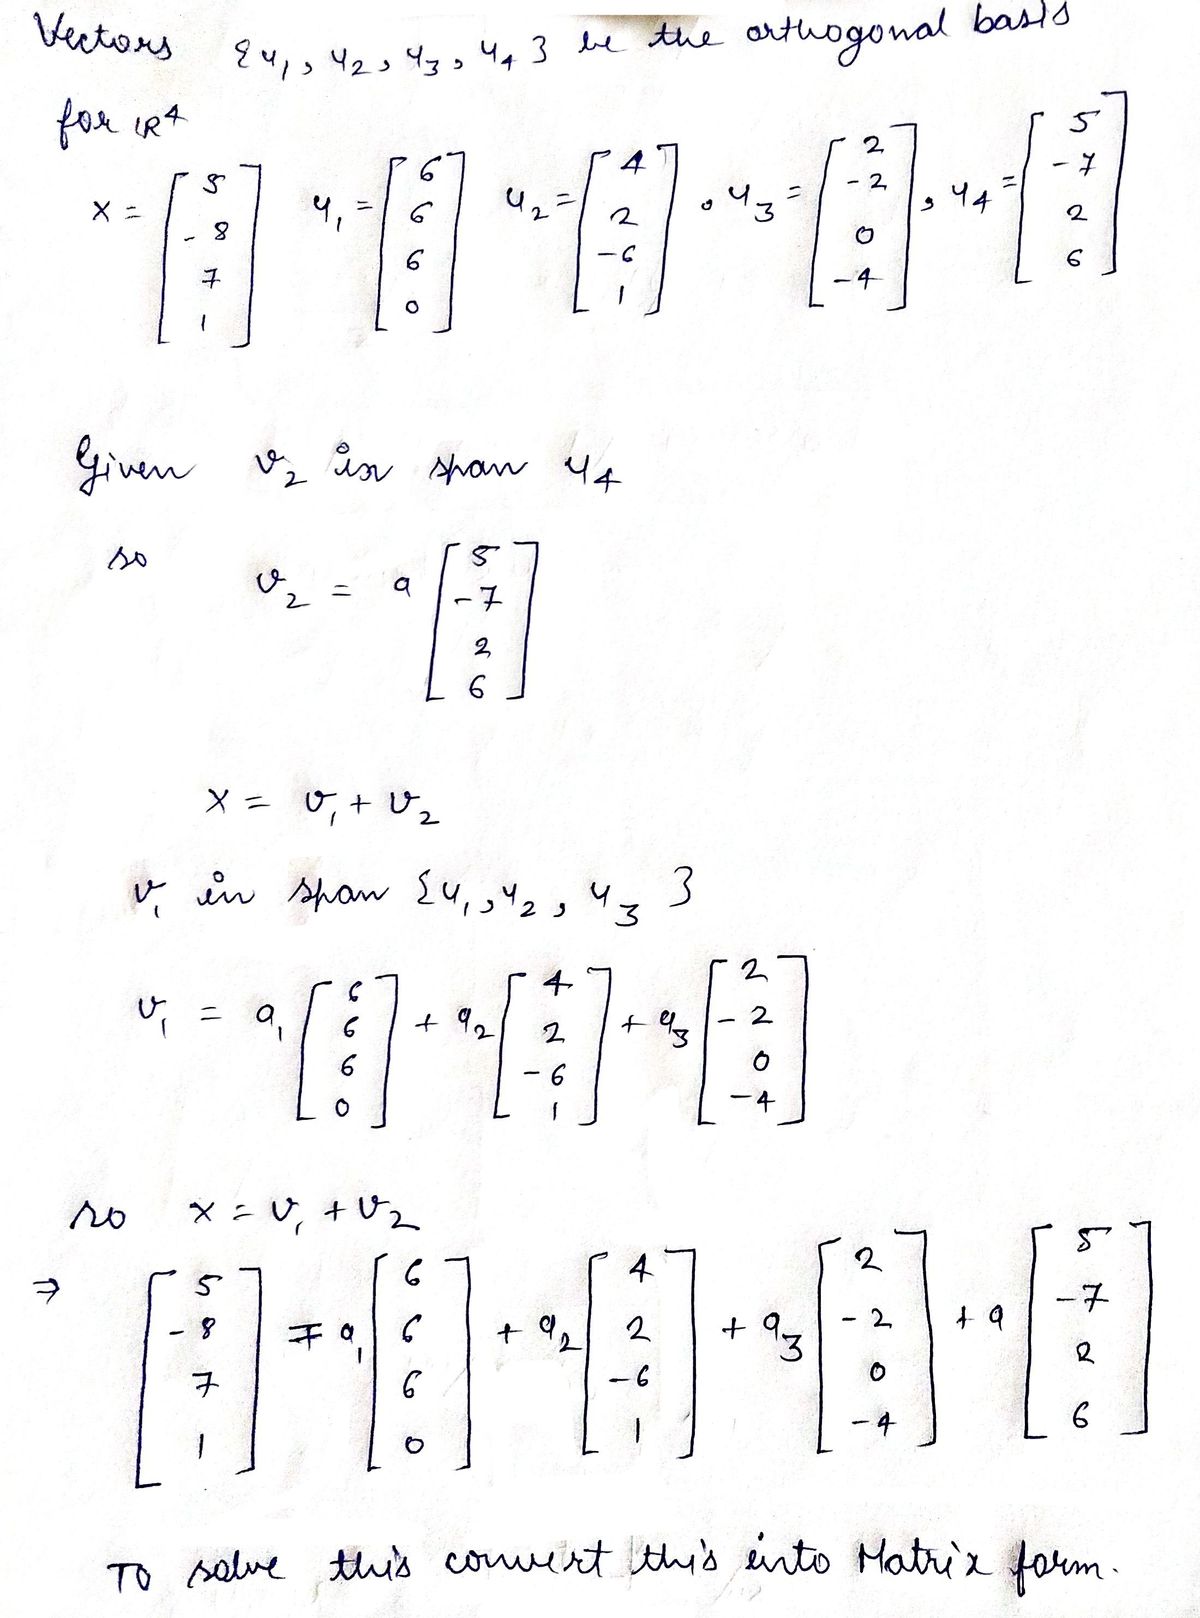 Vectors {u₁, u₂, u₃, u₄} be the orthogonal basis
for IR⁴
x = [5 -8 7 1] u₁ = [6 6 6 0] u₂ = [4 2 -6 1], u₃ = [2 -2 0 -4], u₄ = [5 -7 2 6]
Given v₂ in span u₄
so v₂ = a [5 -7 2 6]
x = v₁ + v₂
v₁ in span {u₁, u₂, u₃}
v₁ = a₁ [6 6 6 0] + a₂ [4 2 -6 1] + a₃ [2 -2 0 -4]
so x = v₁ + v₂
⇒ [5 -8 7 1] = a₁ [6 6 6 0] + a₂ [4 2 -6 1] + a₃ [2 -2 0 -4] + a [5 -7 2 6]
To solve this convert this into Matrix form.